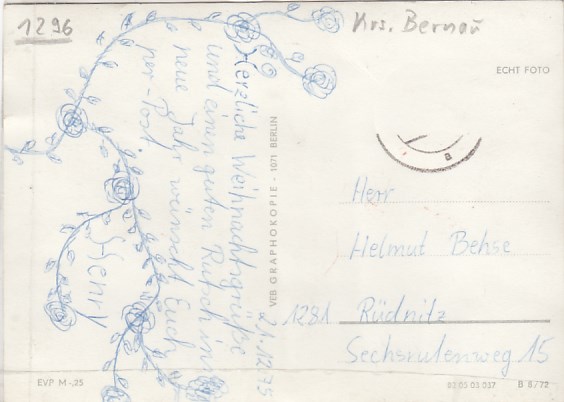 1296
Krs. Bernau
ECHT FOTO
Herzliche Weihnachtsgrüße
und einen guten Rutsch ins
neue Jahr wünscht Euch
per-Post
Henry
21.12.75
VEB GRAPHOKOPIE · 1071 BERLIN
Herr
Helmut Behse
1281 Rüdnitz
Sechsrutenweg 15
EVP M -,25
03 05 03 037
B 8/72